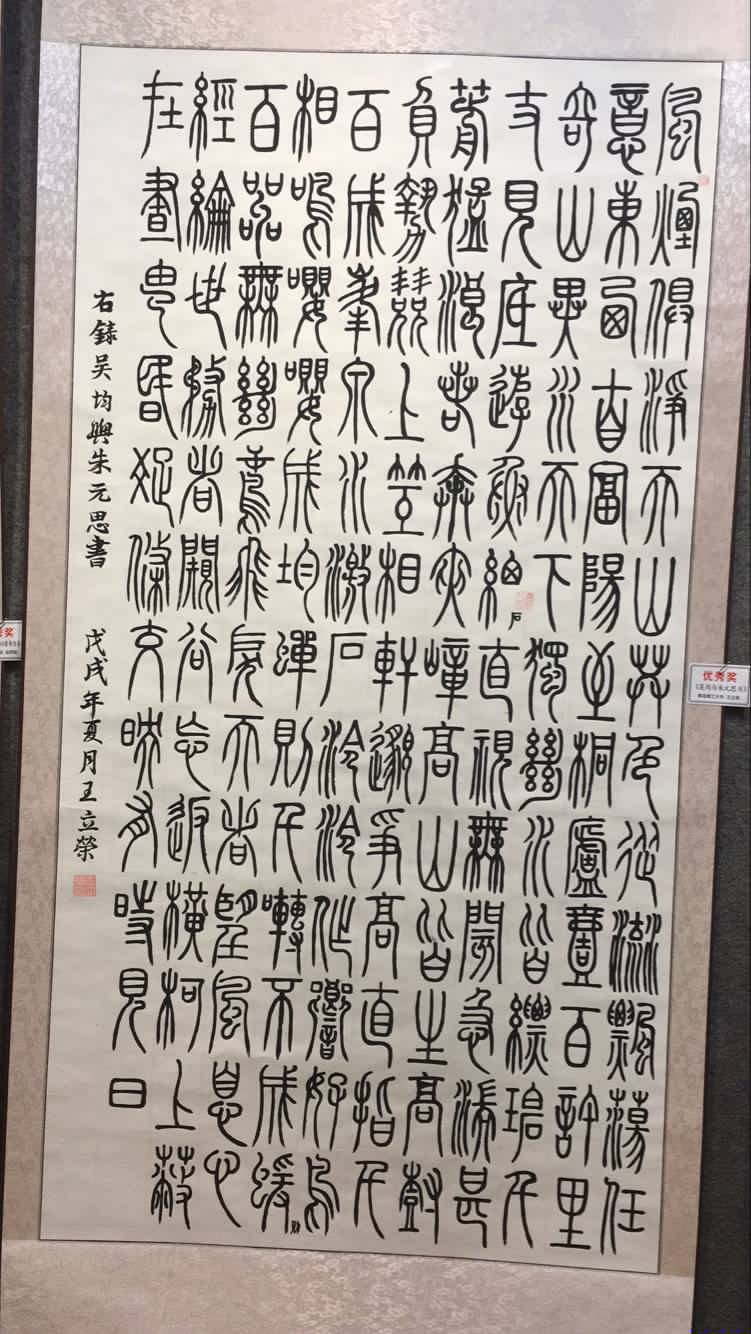 風煙俱淨天山共色從流飄蕩任
意東西自富陽至桐廬壹百許里
奇山異水天下獨絕水皆縹碧千
丈見底遊魚細石直視無礙急湍甚
箭猛浪若奔夾嶂高山皆生高樹
負勢競上互相軒邈爭高直指千
百成峯泉水激石泠泠作響好鳥
相鳴嚶嚶成均蟬則千囀不成蝯則
百叫無絕鳶飛戾天者望風息心
經綸世務者窺谷忘返橫柯上蔽
在晝昏疏條交映有時見日
右錄吴均與朱元思書 戊戌年夏月王立榮
优秀奖
《吴均与朱元思书》
奖